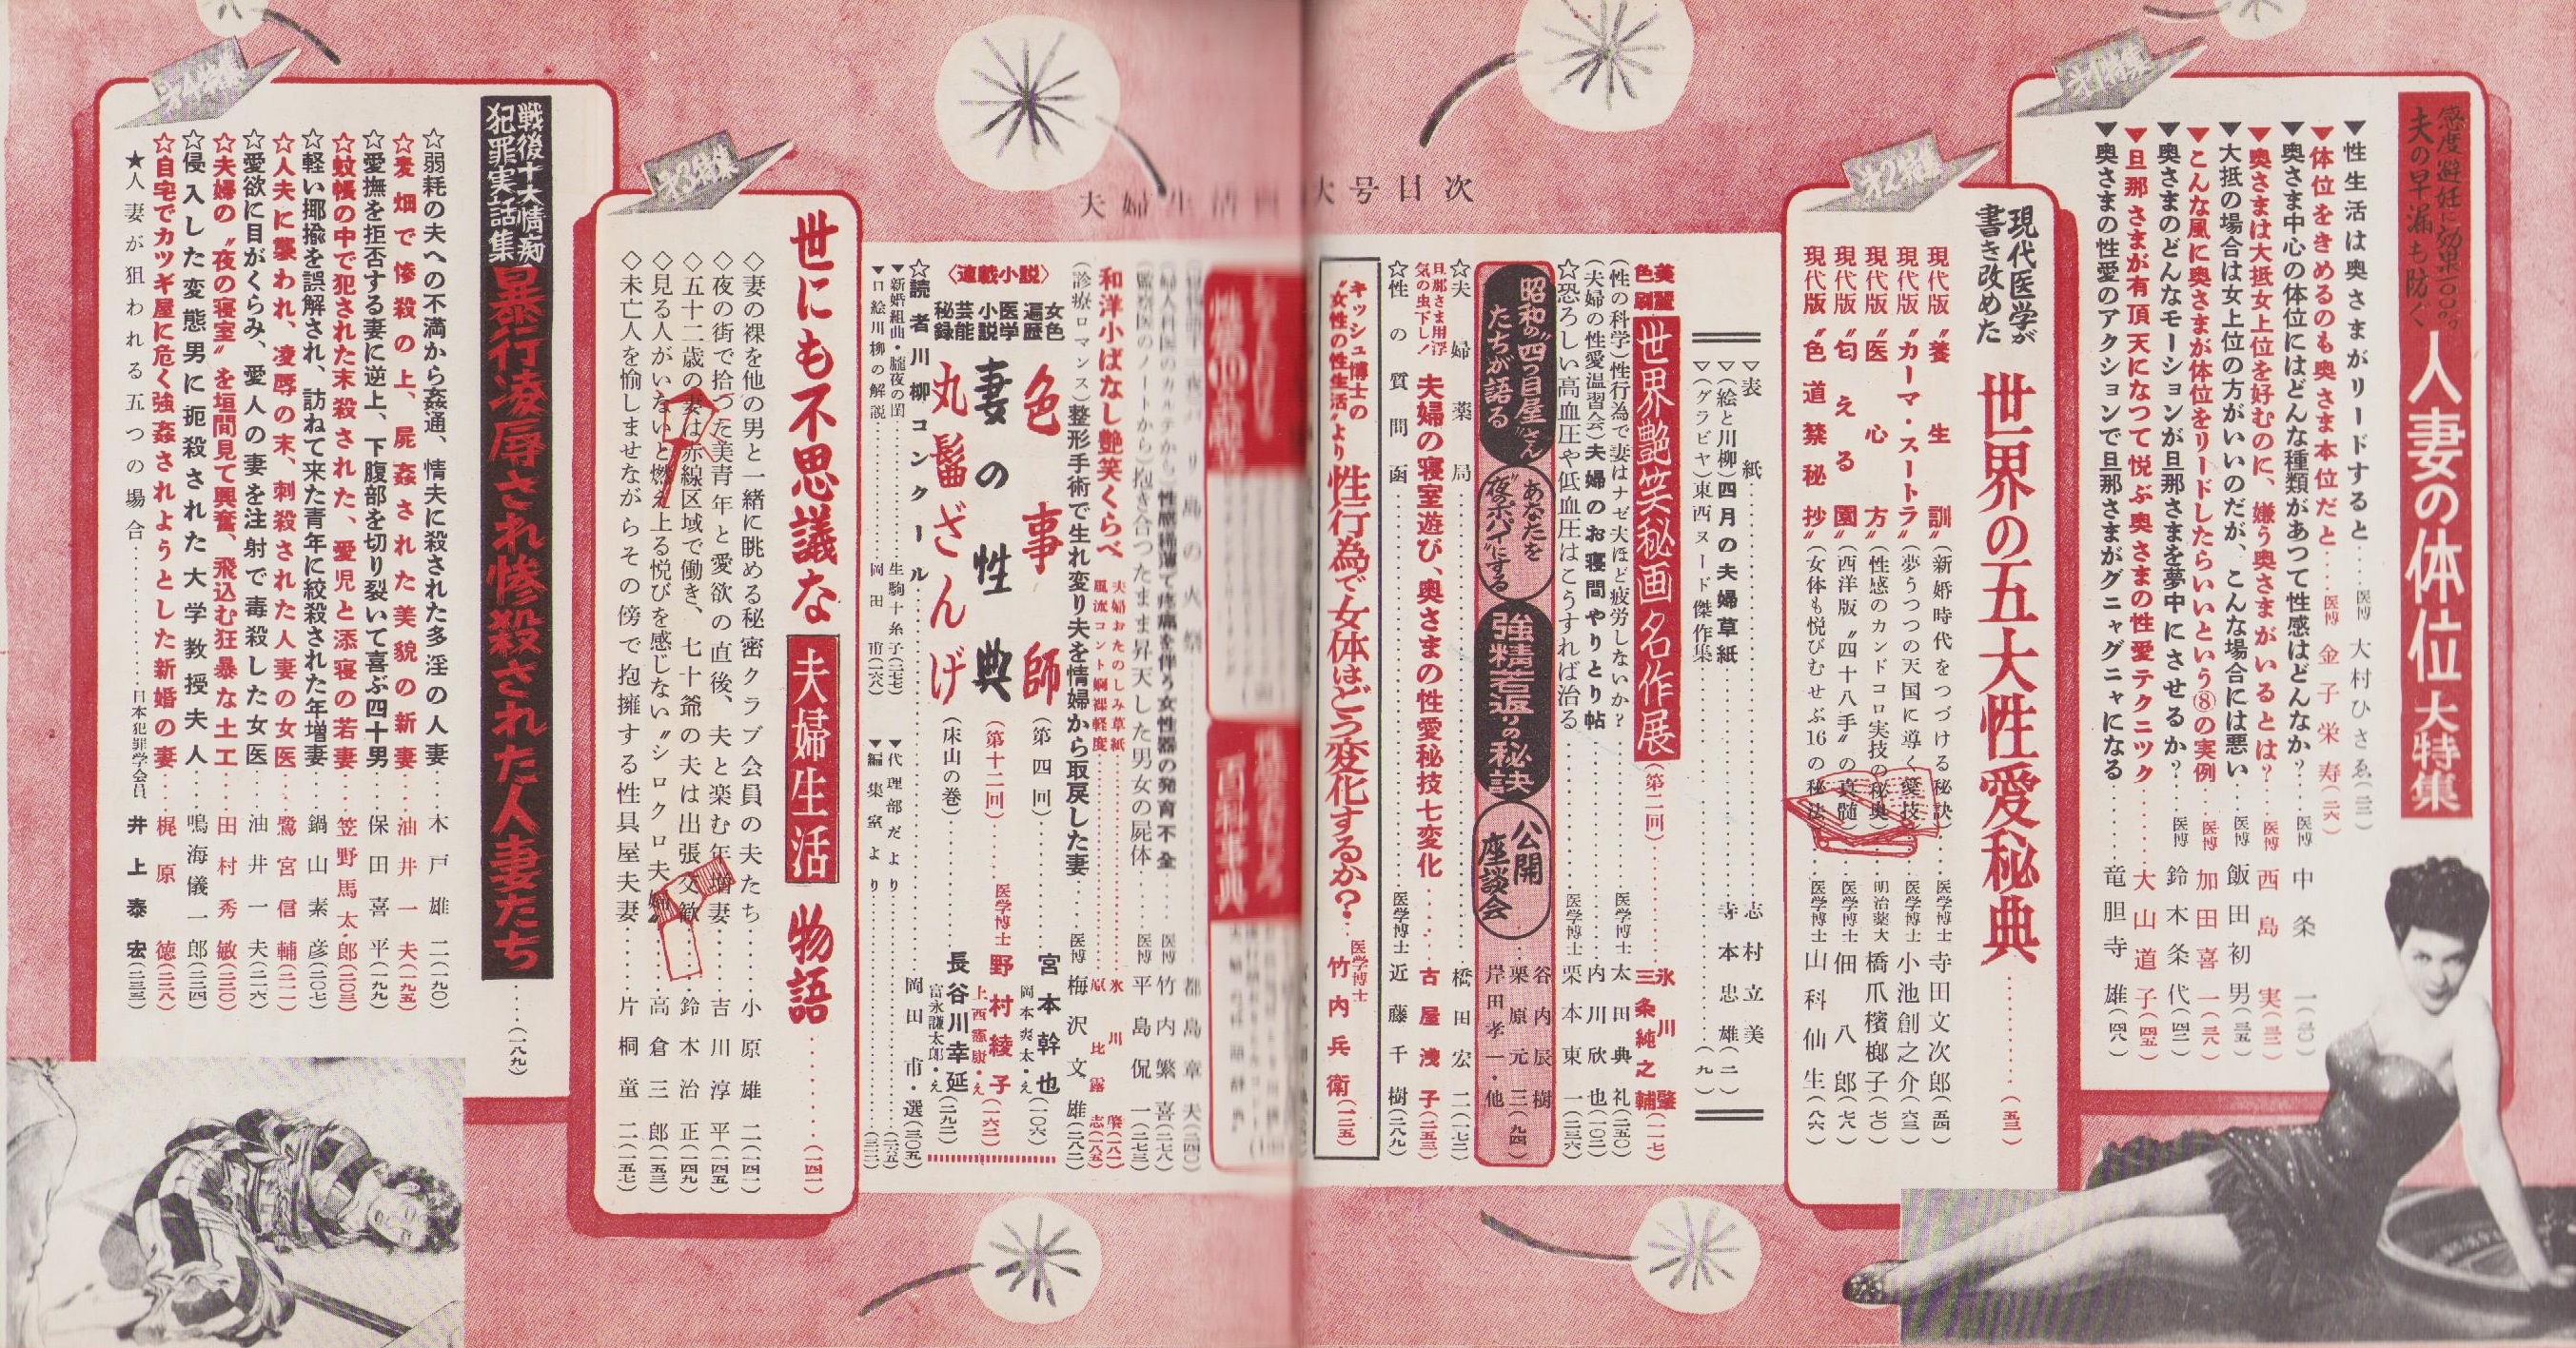 夫婦生活
大号目次
第1特集
感度・避妊に効果100%
夫の早漏も防ぐ
人妻の体位大特集
▼性生活は奥さまがリードすると……医博 大村ひさゑ(二二)
▼体位をきめるのも奥さま本位だと……医博 金子栄寿(二六)
▼奥さま中心の体位にはどんな種類があつて性感はどんなか?…医博 中条一(三〇)
▼奥さまは大抵女上位を好むのに、嫌う奥さまがいるとは?…医博 西島実(三二)
▼大抵の場合は女上位の方がいいのだが、こんな場合には悪い…医博 飯田初男(三五)
▼こんな風に奥さまが体位をリードしたらいいという⑧の実例…医博 加田喜一(三八)
▼奥さまのどんなモーションが旦那さまを夢中にさせるか?…医博 鈴木条代(四二)
▼旦那さまが有頂天になつて悦ぶ奥さまの性愛テクニツク……大山道子(四五)
▼奥さまの性愛のアクションで旦那さまがグニャグニャになる……竜胆寺雄(四八)
第2特集
現代医学が
書き改めた
世界の五大性愛秘典……(五三)
現代版〝養生訓〟(新婚時代をつづける秘訣)…医学博士 寺田文次郎(五四)
現代版〝カーマ・スートラ〟(夢うつつの天国に導く愛技)…医学博士 小池創之介(六三)
現代版〝医心方〟(性感のカンドコロ実技の秘奥)…明治薬大 橋爪檳榔子(七〇)
現代版〝匂える園〟(西洋版〝四十八手〟の真髄)…医学博士 佃八郎(七八)
現代版〝色道禁秘抄〟(女体も悦びむせぶ16の秘法)…医学博士 山科仙生(八六)
▽表紙……志村立美
▽(絵と川柳)四月の夫婦草紙……寺本忠雄(二)
▽(グラビヤ)東西ヌード傑作集……(九)
美麗
色刷
世界艶笑秘画名作展(第二回)……氷川肇
三条純之輔(一一七)
(性の科学)性行為で妻はナゼ夫ほど疲労しないか?……医学博士 太田典礼(二五〇)
(夫婦の性愛温習会)夫婦のお寝間やりとり帖……内川欣也(一〇二)
☆恐ろしい高血圧や低血圧はこうすれば治る……医学博士 栗本東一(二三六)
昭和の〝四つ目屋〟さん
たちが語る
あなたを
〝夜のポパイ〟にする
強精若返りの秘訣
公開
座談会
谷内辰樹
栗原元三
岸田孝一・他(九四)
☆夫婦薬局……橋田宏二(一七二)
旦那さま用浮
気の虫下し!
夫婦の寝室遊び、奥さまの性愛秘技七変化……古屋浅子(二五三)
☆性の質問函……医学博士 近藤千樹(二八九)
キッシュ博士の
〝女性の性生活〟より
性行為で女体はどう変化するか?…医学博士 竹内兵衛(二二五)
和洋小ばなし艶笑くらべ
夫婦おたのしみ草紙……氷川肇(一八一)
風流コント炯裸軽度……原比露志(一八五)
(診療ロマンス)整形手術で生れ変り夫を情婦から取戻した妻……医博 梅沢文雄(二八二)
抱き合つたまま昇天した男女の屍体……医博 平島侃一(二七三)
〈連載小説〉
女色
遍歴
色事師(第四回)……宮本幹也
岡本爽太・え(一〇六)
医学
小説
妻の性典(第十二回)……医学博士 野村綾子(一六二)
芸能
秘録
丸髷ざんげ(床山の巻)……長谷川幸延
富永謙太郎・え(二九二)
☆読者川柳コンクール……岡田甫・選(三〇五)
▼新婚組曲・朧夜の閨……生駒十糸子(二七七)
▼口絵川柳の解説……岡田甫(一六)
▼代理部だより
▼編集室より……(三二二)
第3特集
世にも不思議な夫婦生活物語……(一四一)
◇妻の裸を他の男と一緒に眺める秘密クラブ会員の夫たち……小原雄二(一四一)
◇夜の街で拾つた美青年と愛欲の直後、夫と楽む年増妻……吉川淳平(一四五)
◇五十二歳の妻は赤線区域で働き、七十爺の夫は出張交歓……鈴木治正(一四九)
◇見る人がいないと燃え上る悦びを感じない〝シロクロ夫婦〟…高倉三郎(一五三)
◇未亡人を愉しませながらその傍で抱擁する性具屋夫妻……片桐童二(一五七)
第4特集
戦後十大情痴
犯罪実話集
暴行凌辱され惨殺された人妻たち……(一八九)
☆弱耗の夫への不満から姦通、情夫に殺された多淫の人妻……木戸雄二(一九〇)
☆麦畑で惨殺の上、屍姦された美貌の新妻……油井一夫(一九五)
☆愛撫を拒否する妻に逆上、下腹部を切り裂いて喜ぶ四十男……保田喜平(一九九)
☆蚊帳の中で犯された末殺された、愛児と添寝の若妻……笠野馬太郎(二〇三)
☆軽い揶揄を誤解され、訪ねて来た青年に絞殺された年増妻…鍋山素彦(二〇七)
☆人夫に襲われ、凌辱の末、刺殺された人妻の女医……鷺宮信輔(二一一)
☆愛欲に目がくらみ、愛人の妻を注射で毒殺した女医……油井一夫(二一六)
☆夫婦の〝夜の寝室〟を垣間見て興奮、飛込む狂暴な土工……田村秀敏(二二〇)
☆侵入した変態男に扼殺された大学教授夫人……鳴海儀一郎(二二四)
☆自宅でカツギ屋に危く強姦されようとした新婚の妻……梶原徳(二二八)
★人妻が狙われる五つの場合……日本犯罪学会員 井上泰宏(二三三)